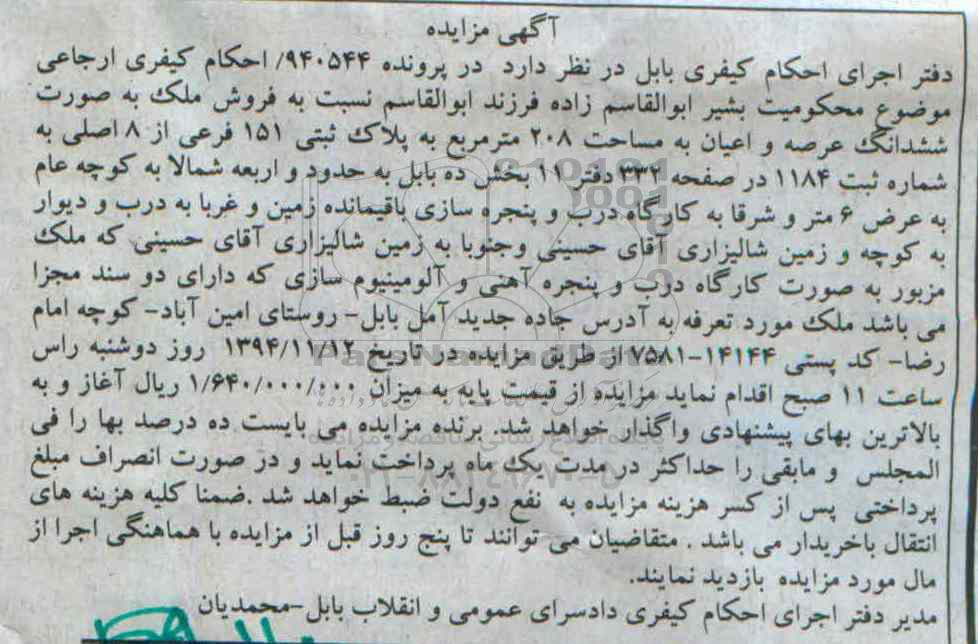 آگهی مزایده
دفتر اجرای احکام کیفری بابل در نظر دارد در پرونده ۹۴۰۵۴۴/ احکام کیفری ارجاعی
موضوع محکومیت بشیر ابوالقاسم زاده فرزند ابوالقاسم نسبت به فروش ملک به صورت
ششدانگ عرصه و اعیان به مساحت ۲۰۸ مترمربع به پلاک ثبتی ۱۵۱ فرعی از ۸ اصلی به
شماره ثبت ۱۱۸۴ در صفحه ۳۳۲ دفتر ۱۱ بخش ده بابل به حدود و اربعه شمالا به کوچه عام
به عرض ۶ متر و شرقا به کارگاه درب و پنجره سازی باقیمانده زمین و غربا به درب و دیوار
به کوچه و زمین شالیزاری آقای حسینی وجنوبا به زمین شالیزاری آقای حسینی که ملک
مزبور به صورت کارگاه درب و پنجره آهنی و آلومینیوم سازی که دارای دو سند مجزا
می باشد ملک مورد تعرفه به آدرس جاده جدید آمل بابل- روستای امین آباد- کوچه امام
رضا- کد پستی ۱۴۱۴۴-۷۵۸۱ از طریق مزایده در تاریخ ۱۳۹۴/۱۱/۱۲ روز دوشنبه راس
ساعت ۱۱ صبح اقدام نماید مزایده از قیمت پایه به میزان ۱/۶۴۰/۰۰۰/۰۰۰ ریال آغاز و به
بالاترین بهای پیشنهادی واگذار خواهد شد. برنده مزایده می بایست ده درصد بها را فی
المجلس و مابقی را حداکثر در مدت یک ماه پرداخت نماید و در صورت انصراف مبلغ
پرداختی پس از کسر هزینه مزایده به نفع دولت ضبط خواهد شد .ضمنا کلیه هزینه های
انتقال باخریدار می باشد . متقاضیان می توانند تا پنج روز قبل از مزایده با هماهنگی اجرا از
مال مورد مزایده بازدید نمایند.
مدیر دفتر اجرای احکام کیفری دادسرای عمومی و انقلاب بابل-محمدیان